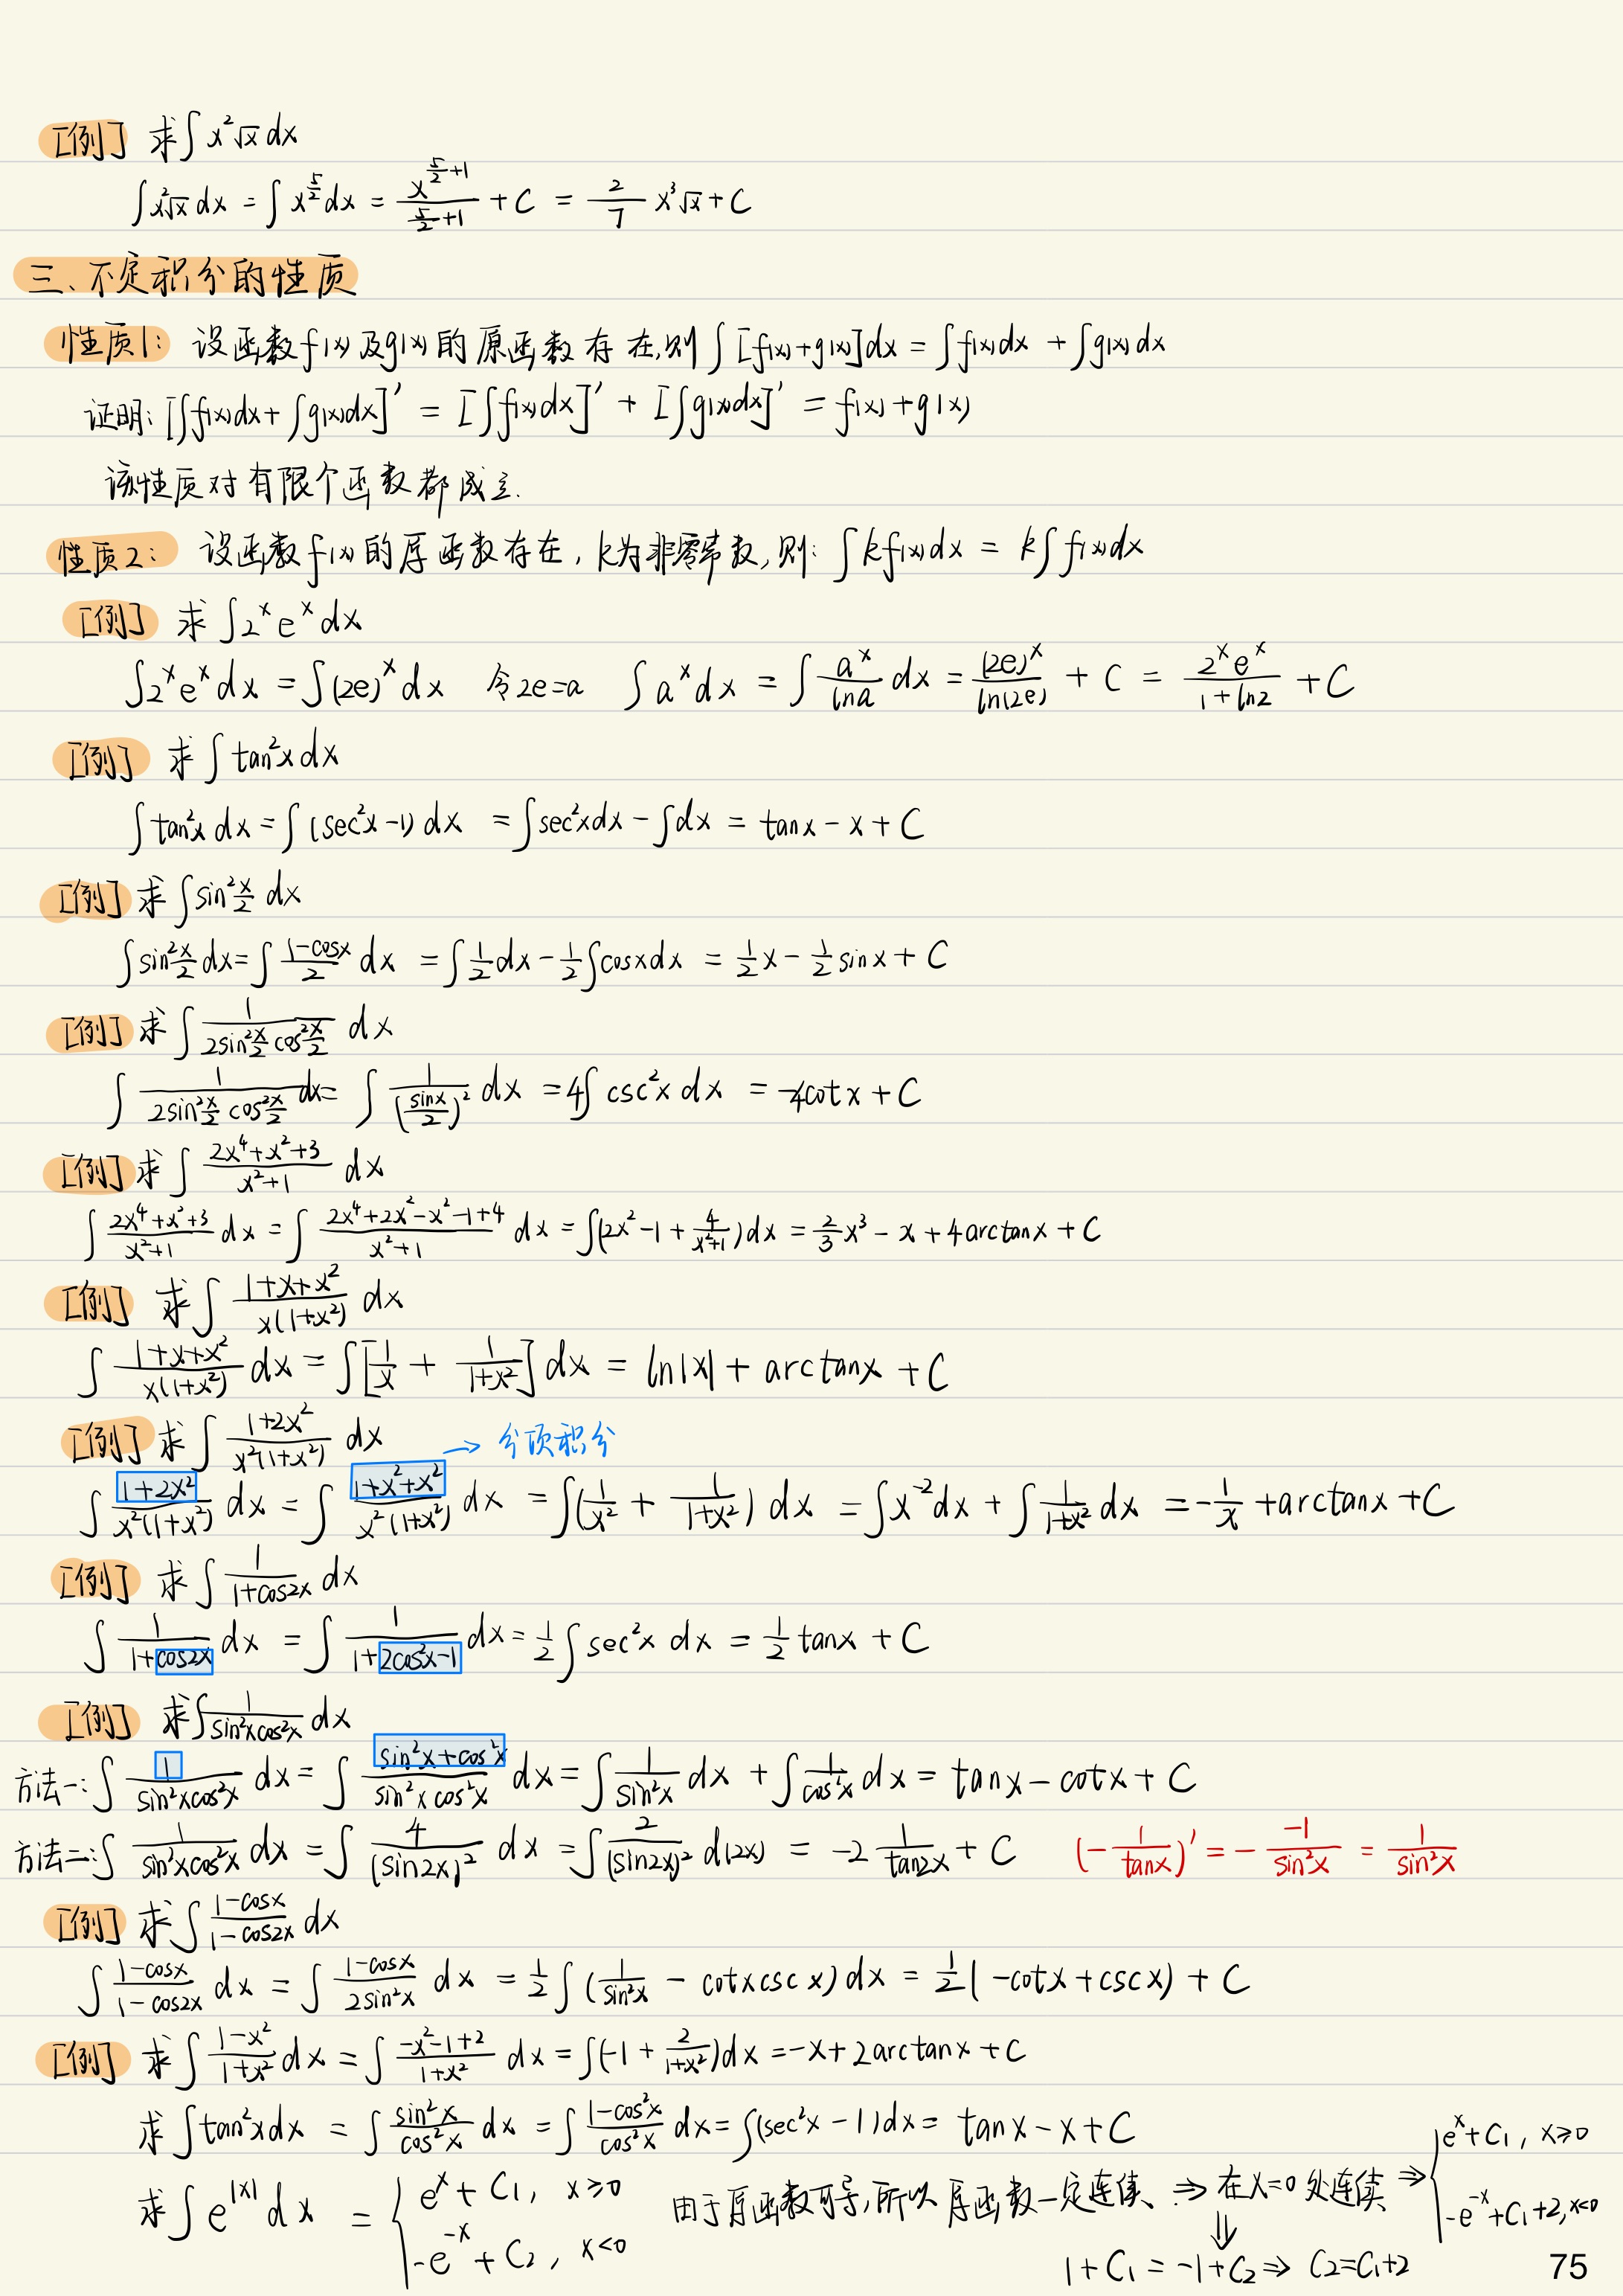 [例] 求∫x²√x dx
∫x²√x dx = ∫x^(5/2) dx = x^(5/2+1)/(5/2+1) + C = 2/7 x³√x + C
三、不定积分的性质
性质1: 设函数f(x)及g(x)的原函数存在,则∫[f(x)+g(x)]dx = ∫f(x)dx + ∫g(x)dx
证明: [∫f(x)dx + ∫g(x)dx]' = [∫f(x)dx]' + [∫g(x)dx]' = f(x)+g(x)
该性质对有限个函数都成立.
性质2: 设函数f(x)的原函数存在, k为非零常数, 则: ∫kf(x)dx = k∫f(x)dx
[例] 求∫2^x e^x dx
∫2^x e^x dx = ∫(2e)^x dx 令2e=a ∫a^x dx = ∫a^x/lna dx = (2e)^x/ln(2e) + C = 2^x e^x/(1+ln2) + C
[例] 求∫tan²x dx
∫tan²x dx = ∫(sec²x-1) dx = ∫sec²x dx - ∫dx = tanx - x + C
[例] 求∫sin²(x/2) dx
∫sin²(x/2) dx = ∫(1-cosx)/2 dx = ∫1/2 dx - 1/2∫cosx dx = 1/2 x - 1/2 sinx + C
[例] 求∫1/(2sin²(x/2)cos²(x/2)) dx
∫1/(2sin²(x/2)cos²(x/2)) dx = ∫1/(sinx/2)² dx = 4∫csc²x dx = -4cotx + C
[例] 求∫(2x⁴+x²+3)/(x²+1) dx
∫(2x⁴+x²+3)/(x²+1) dx = ∫(2x⁴+2x²-x²-1+4)/(x²+1) dx = ∫(2x²-1+4/(x²+1))dx = 2/3 x³ - x + 4arctanx + C
[例] 求∫(1+x+x²)/(x(1+x²)) dx
∫(1+x+x²)/(x(1+x²)) dx = ∫[1/x + 1/(1+x²)] dx = ln|x| + arctanx + C
[例] 求∫(1+2x²)/(x²(1+x²)) dx → 分项积分
∫(1+2x²)/(x²(1+x²)) dx = ∫(1+x²+x²)/(x²(1+x²)) dx = ∫(1/x² + 1/(1+x²)) dx = ∫x^(-2) dx + ∫1/(1+x²) dx = -1/x + arctanx + C
[例] 求∫1/(1+cos2x) dx
∫1/(1+cos2x) dx = ∫1/(1+2cos²x-1) dx = 1/2∫sec²x dx = 1/2 tanx + C
[例] 求∫1/(sin²xcos²x) dx
方法一: ∫1/(sin²xcos²x) dx = ∫(sin²x+cos²x)/(sin²xcos²x) dx = ∫1/sin²x dx + ∫1/cos²x dx = tanx - cotx + C
方法二: ∫1/(sin²xcos²x) dx = ∫4/(sin2x)² dx = ∫2/(sin2x)² d(2x) = -2 1/tan2x + C (-1/tanx)' = - -1/sin²x = 1/sin²x
[例] 求∫(1-cosx)/(1-cos2x) dx
∫(1-cosx)/(1-cos2x) dx = ∫(1-cosx)/(2sin²x) dx = 1/2∫(1/sin²x - cotxcscx) dx = 1/2(-cotx+cscx) + C
[例] 求∫(1-x²)/(1+x²) dx = ∫(-x²-1+2)/(1+x²) dx = ∫(-1+2/(1+x²))dx = -x+2arctanx+C
求∫tan²x dx = ∫sin²x/cos²x dx = ∫(1-cos²x)/cos²x dx = ∫(sec²x-1)dx = tanx-x+C
求∫e^|x| dx = { e^x + C₁, x≥0 由于原函数可导,所以原函数一定连续 ⇒ 在x=0处连续 ⇒ { e^x+C₁, x≥0
-e^(-x) + C₂, x<0 ⇓ -e^(-x)+C₁+2, x<0
1+C₁ = -1+C₂ ⇒ C₂=C₁+2
75